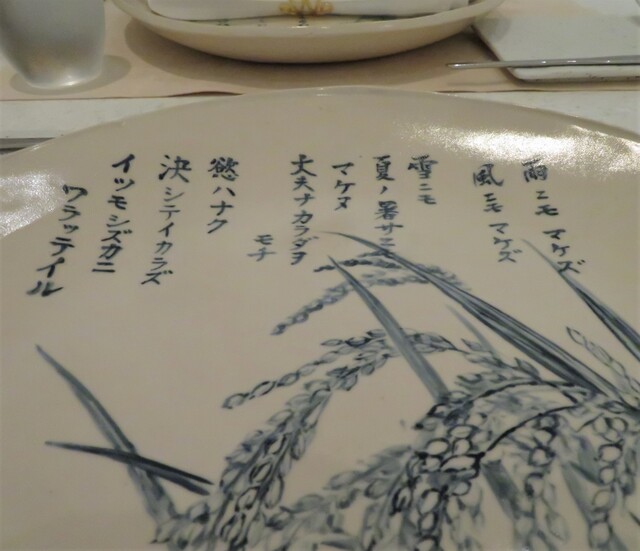 雨ニモマケズ
風ニモマケズ
雪ニモ
夏ノ暑サニ
マケヌ
大夫ナカラダヲ
モチ
慾ハナク
決シテイカラズ
イツモシズカニ
ワラッテイル